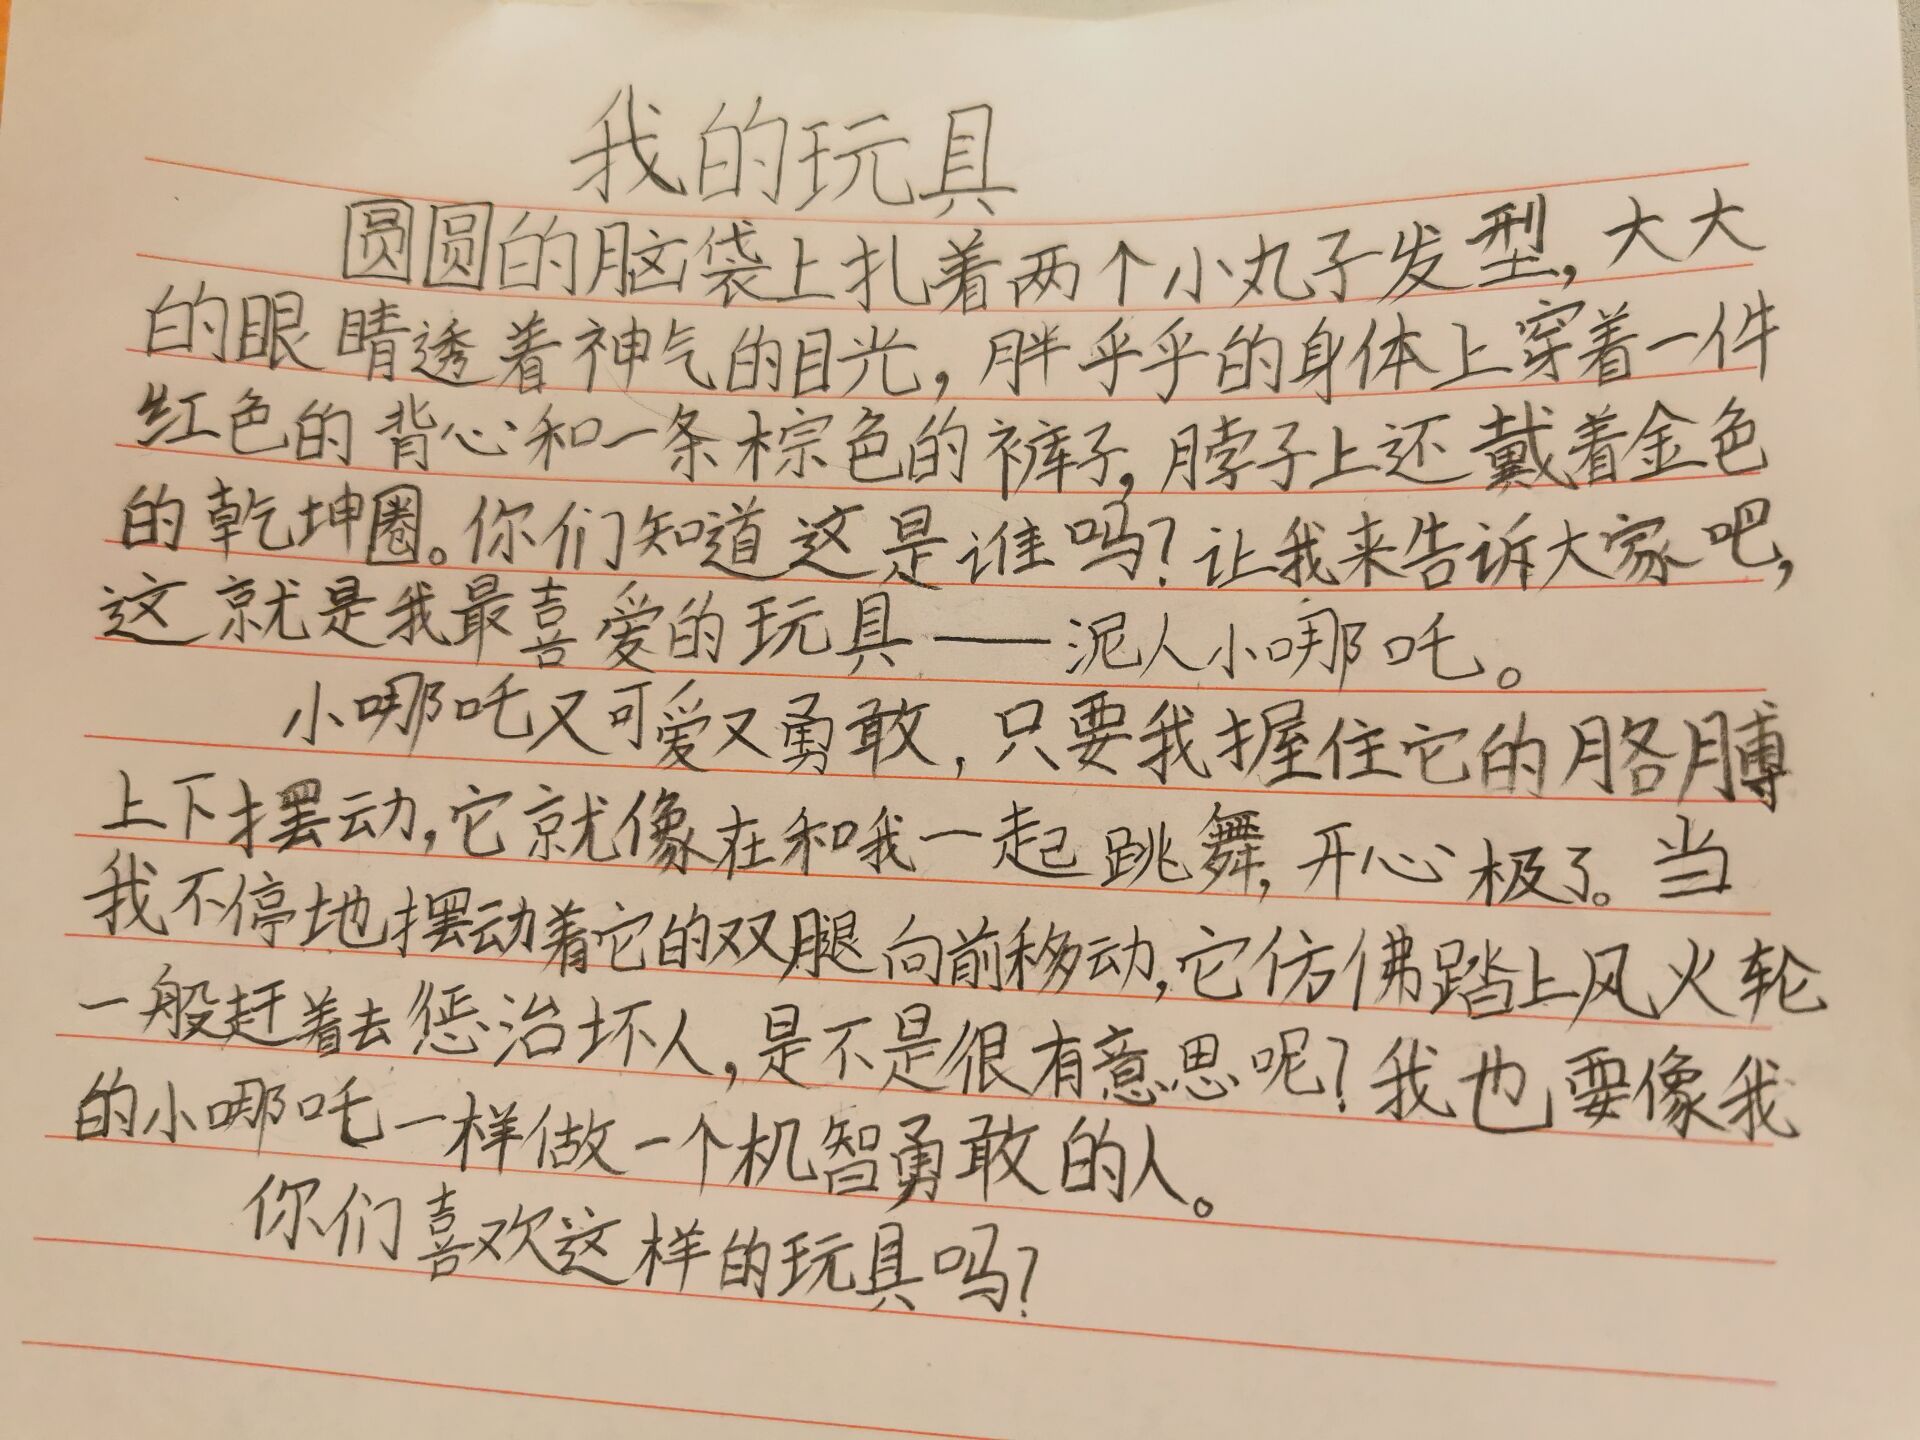 我的玩具
圆圆的脑袋上扎着两个小丸子发型，大大
的眼睛透着神气的目光，胖乎乎的身体上穿着一件
红色的背心和一条棕色的裤子，脖子上还戴着金色
的乾坤圈。你们知道这是谁吗？让我来告诉大家吧，
这就是我最喜爱的玩具——泥人小哪吒。
小哪吒又可爱又勇敢，只要我握住它的胳膊
上下摆动，它就像在和我一起跳舞，开心极了。当
我不停地摆动着它的双腿向前移动，它仿佛踏上风火轮
一般赶着去惩治坏人，是不是很有意思呢？我也要像我
的小哪吒一样做一个机智勇敢的人。
你们喜欢这样的玩具吗？